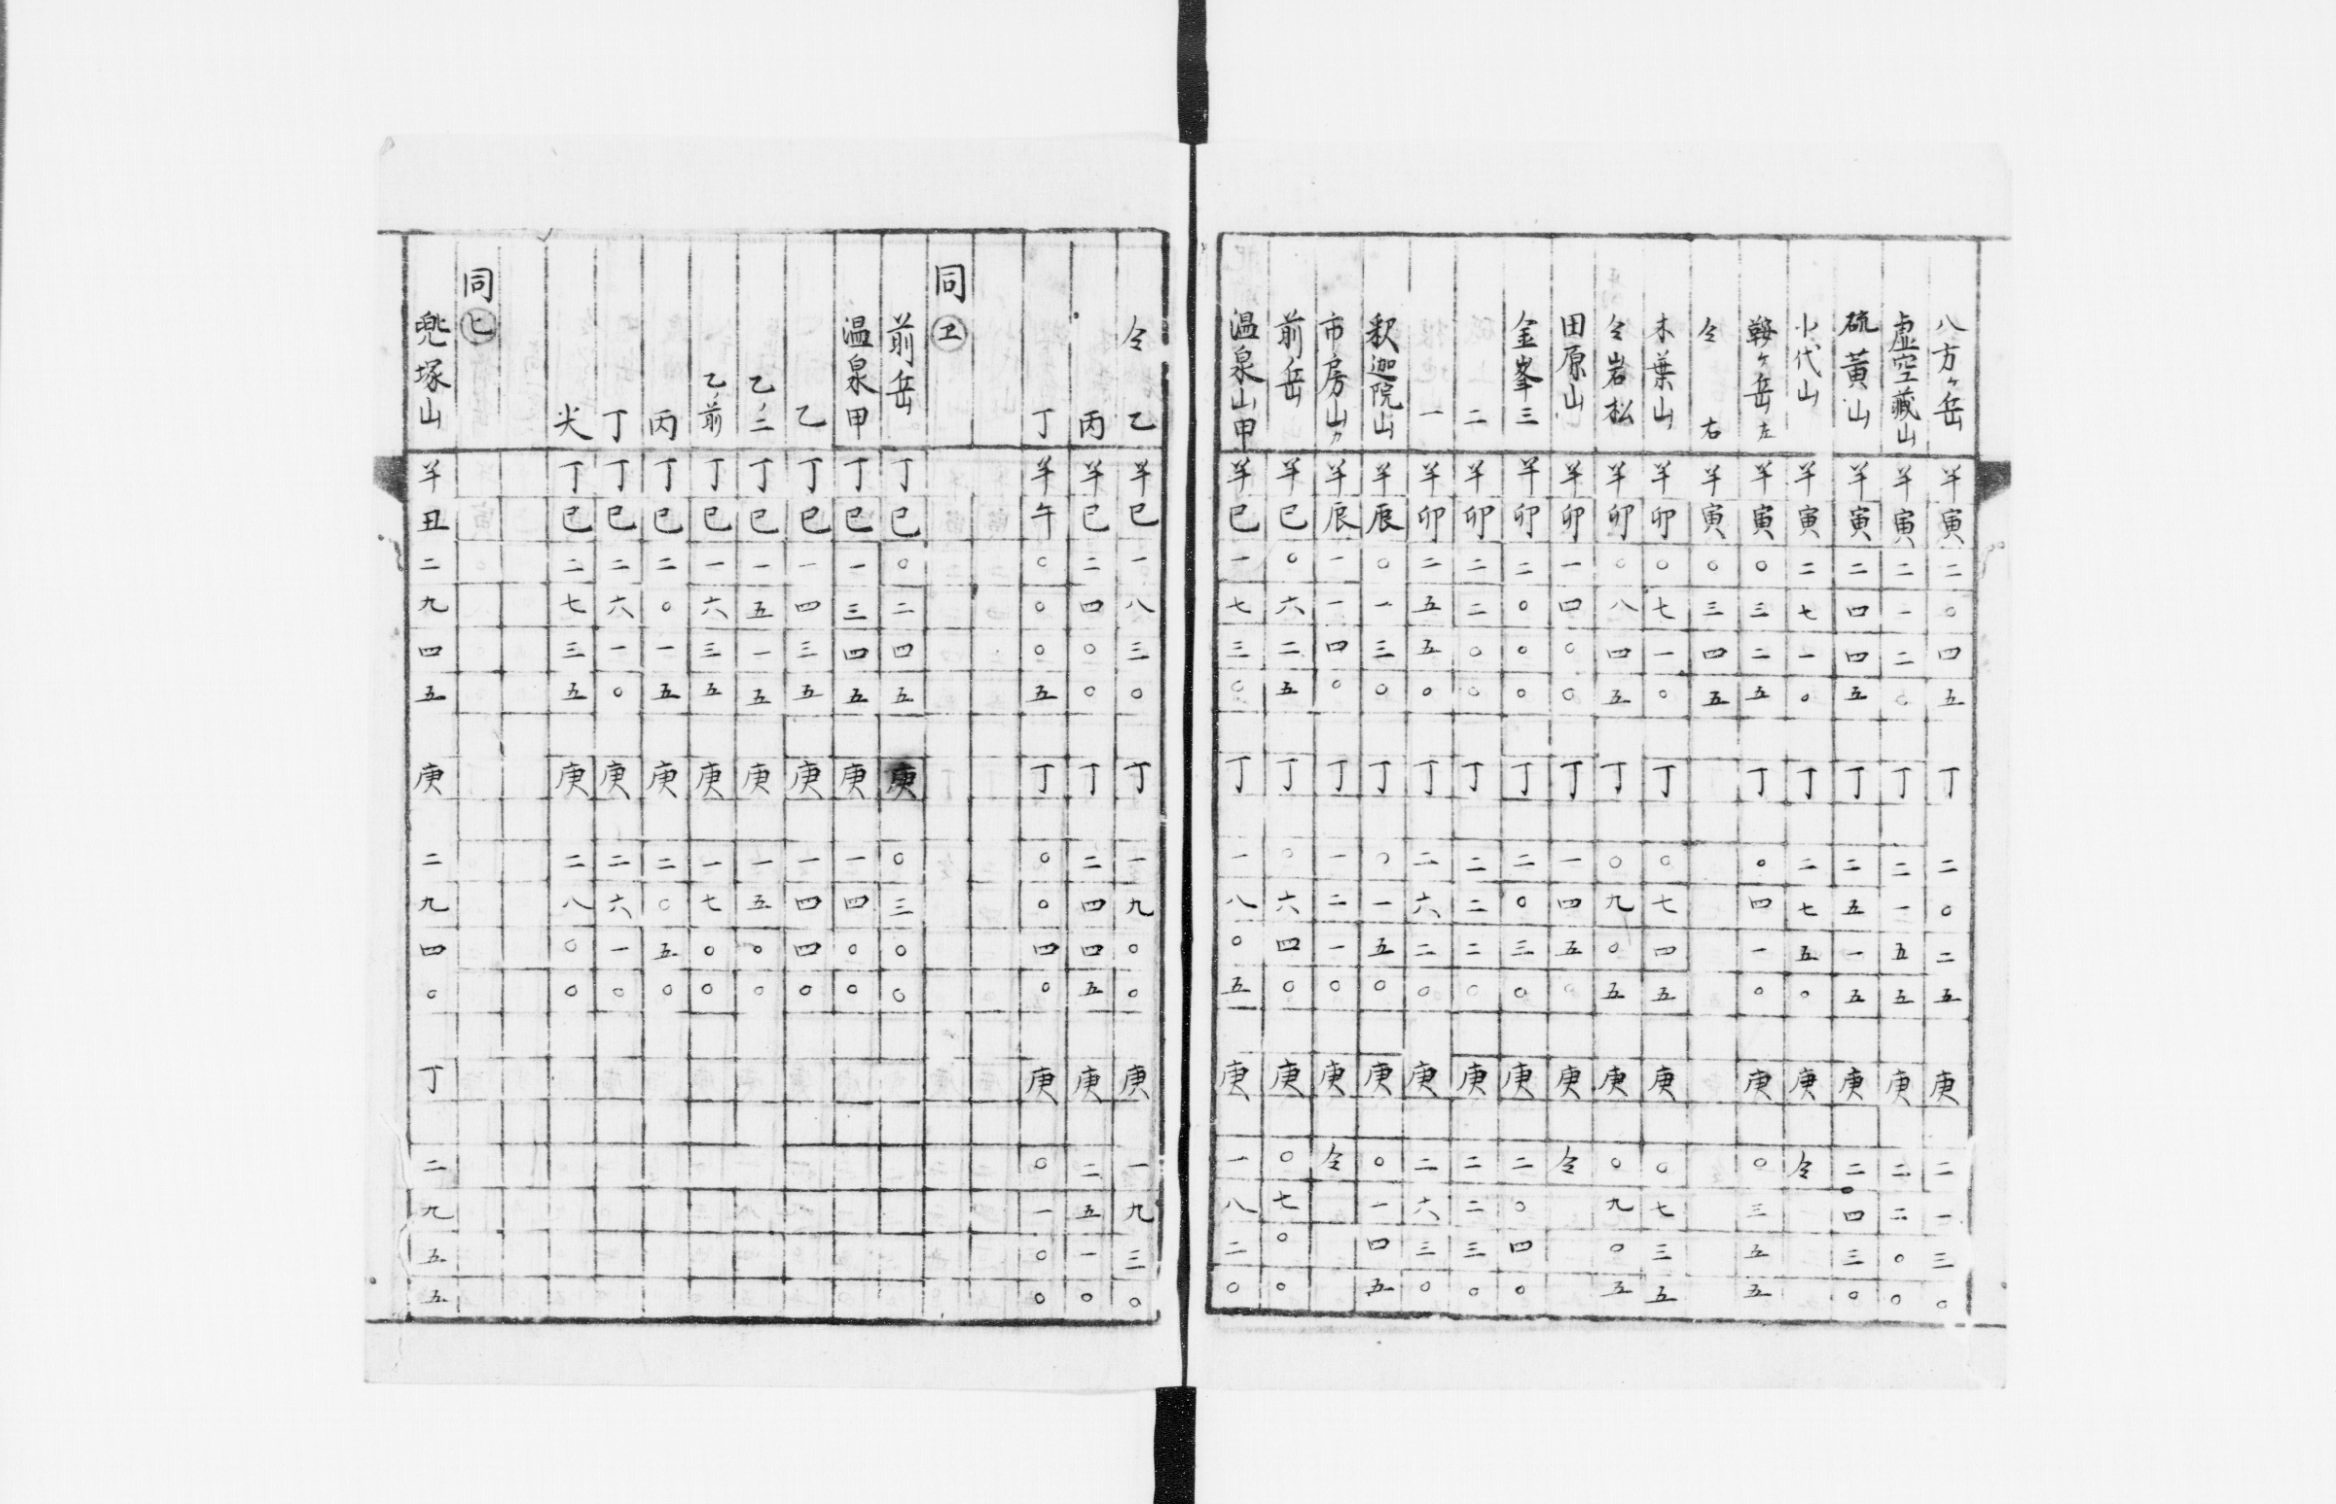 八方ヶ岳 羊寅二〇四五 丁二〇二五 庚二一三〇
虚空蔵山 羊寅二一二〇 丁二一五五 庚二二〇〇
硫黄山 羊寅二四四五 丁二五一五 庚二〇四三〇
小代山 羊寅二七一〇 丁二七五〇 庚仝
鞍ヶ岳左 羊寅〇三二五 丁〇四一〇 庚〇三五五
仝右 羊寅〇三四五
木葉山 羊卯〇七一〇 丁〇七四五 庚〇七三五
仝岩松 羊卯〇八四五 丁〇九〇五 庚〇九〇五
田原山 羊卯一四〇〇 丁一四五〇 庚仝
金峯三 羊卯二〇〇〇 丁二〇三〇 庚二〇四〇
二 羊卯二二〇〇 丁二二二〇 庚二二三〇
一 羊卯二五五〇 丁二六二〇 庚二六三〇
釈迦院山 羊辰〇一三〇 丁〇一五〇 庚〇一四五
市房山カ 羊辰一一四〇 丁一二一〇 庚仝
前岳 羊巳〇六二五 丁〇六四〇 庚〇七〇〇
温泉山甲 羊巳一七三〇 丁一八〇五 庚一八二〇
仝乙 羊巳一八三〇 丁一九〇〇 庚一九三〇
丙 羊巳二四〇〇 丁二四四五 庚二五一〇
丁 羊午〇〇〇五 丁〇〇四〇 庚〇一〇〇
同 ヱ
前岳 丁巳〇二四五 庚〇三〇〇
温泉甲 丁巳一三四五 庚一四〇〇
乙 丁巳一四三五 庚一四四〇
乙ノ二 丁巳一五一五 庚一五〇〇
乙ノ前 丁巳一六三五 庚一七〇〇
丙 丁巳二〇一五 庚二〇五〇
丁 丁巳二六一〇 庚二六一〇
尖 丁巳二七三五 庚二八〇〇
同 ヒ
兜塚山 羊丑二九四五 庚二九四〇 丁二九五五